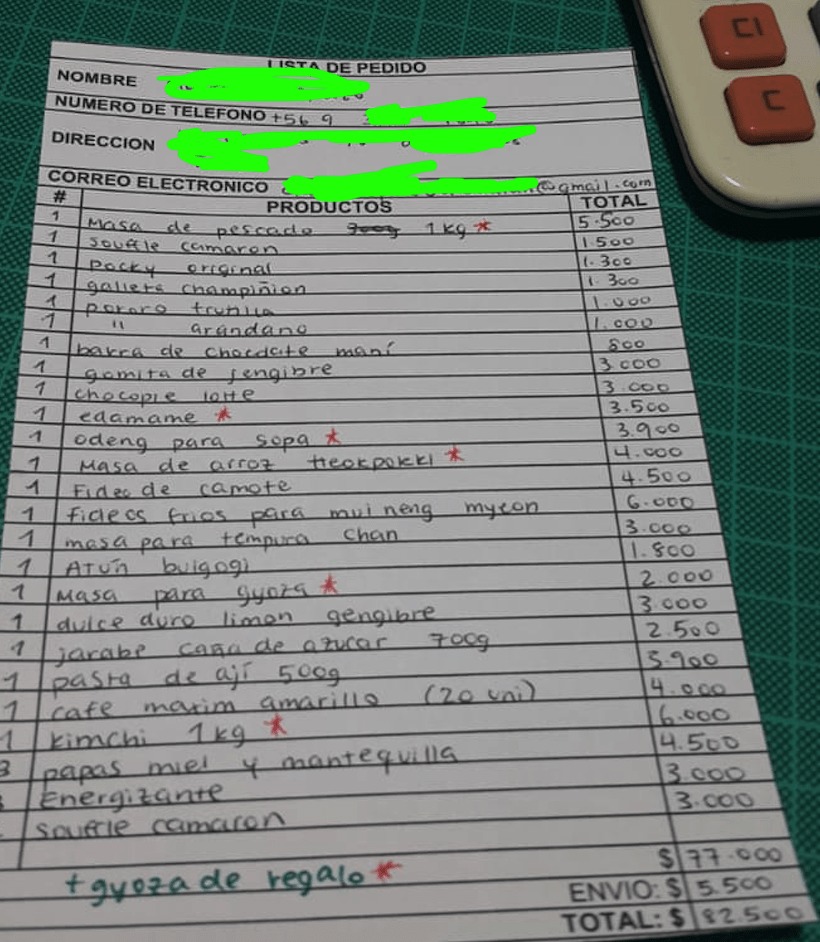 LISTA DE PEDIDO
NOMBRE
NUMERO DE TELEFONO +56 9
DIRECCION
CORREO ELECTRONICO @gmail.com
# PRODUCTOS TOTAL
1 Masa de pescado 900g 1kg * 5.500
1 souffle camaron 1.500
1 pocky original 1.300
1 galleta champiñion 1.300
1 pororo frutilla 1.000
1 " arandano 1.000
1 barra de chocolate maní 800
1 gomita de jengibre 3.000
1 chocopie latte 3.000
1 edamame * 3.500
1 odeng para sopa * 3.900
1 Masa de arroz tteokpokki * 4.000
1 Fideo de camote 4.500
1 fideos frios para mul neng myeon 6.000
1 masa para tempura chan 3.000
1 Atún bulgogi 1.800
1 Masa para gyoza * 2.000
1 dulce duro limon gengibre 3.000
1 jarabe caña de azucar 700g 2.500
1 pasta de ají 500g 3.900
1 cafe maxim amarillo (20 uni) 4.000
1 kimchi 1kg * 6.000
3 papas miel y mantequilla 4.500
Energizante 3.000
souffle camaron 3.000
$ 77.000
+ gyoza de regalo *
ENVIO: $ 5.500
TOTAL: $ 82.500
C